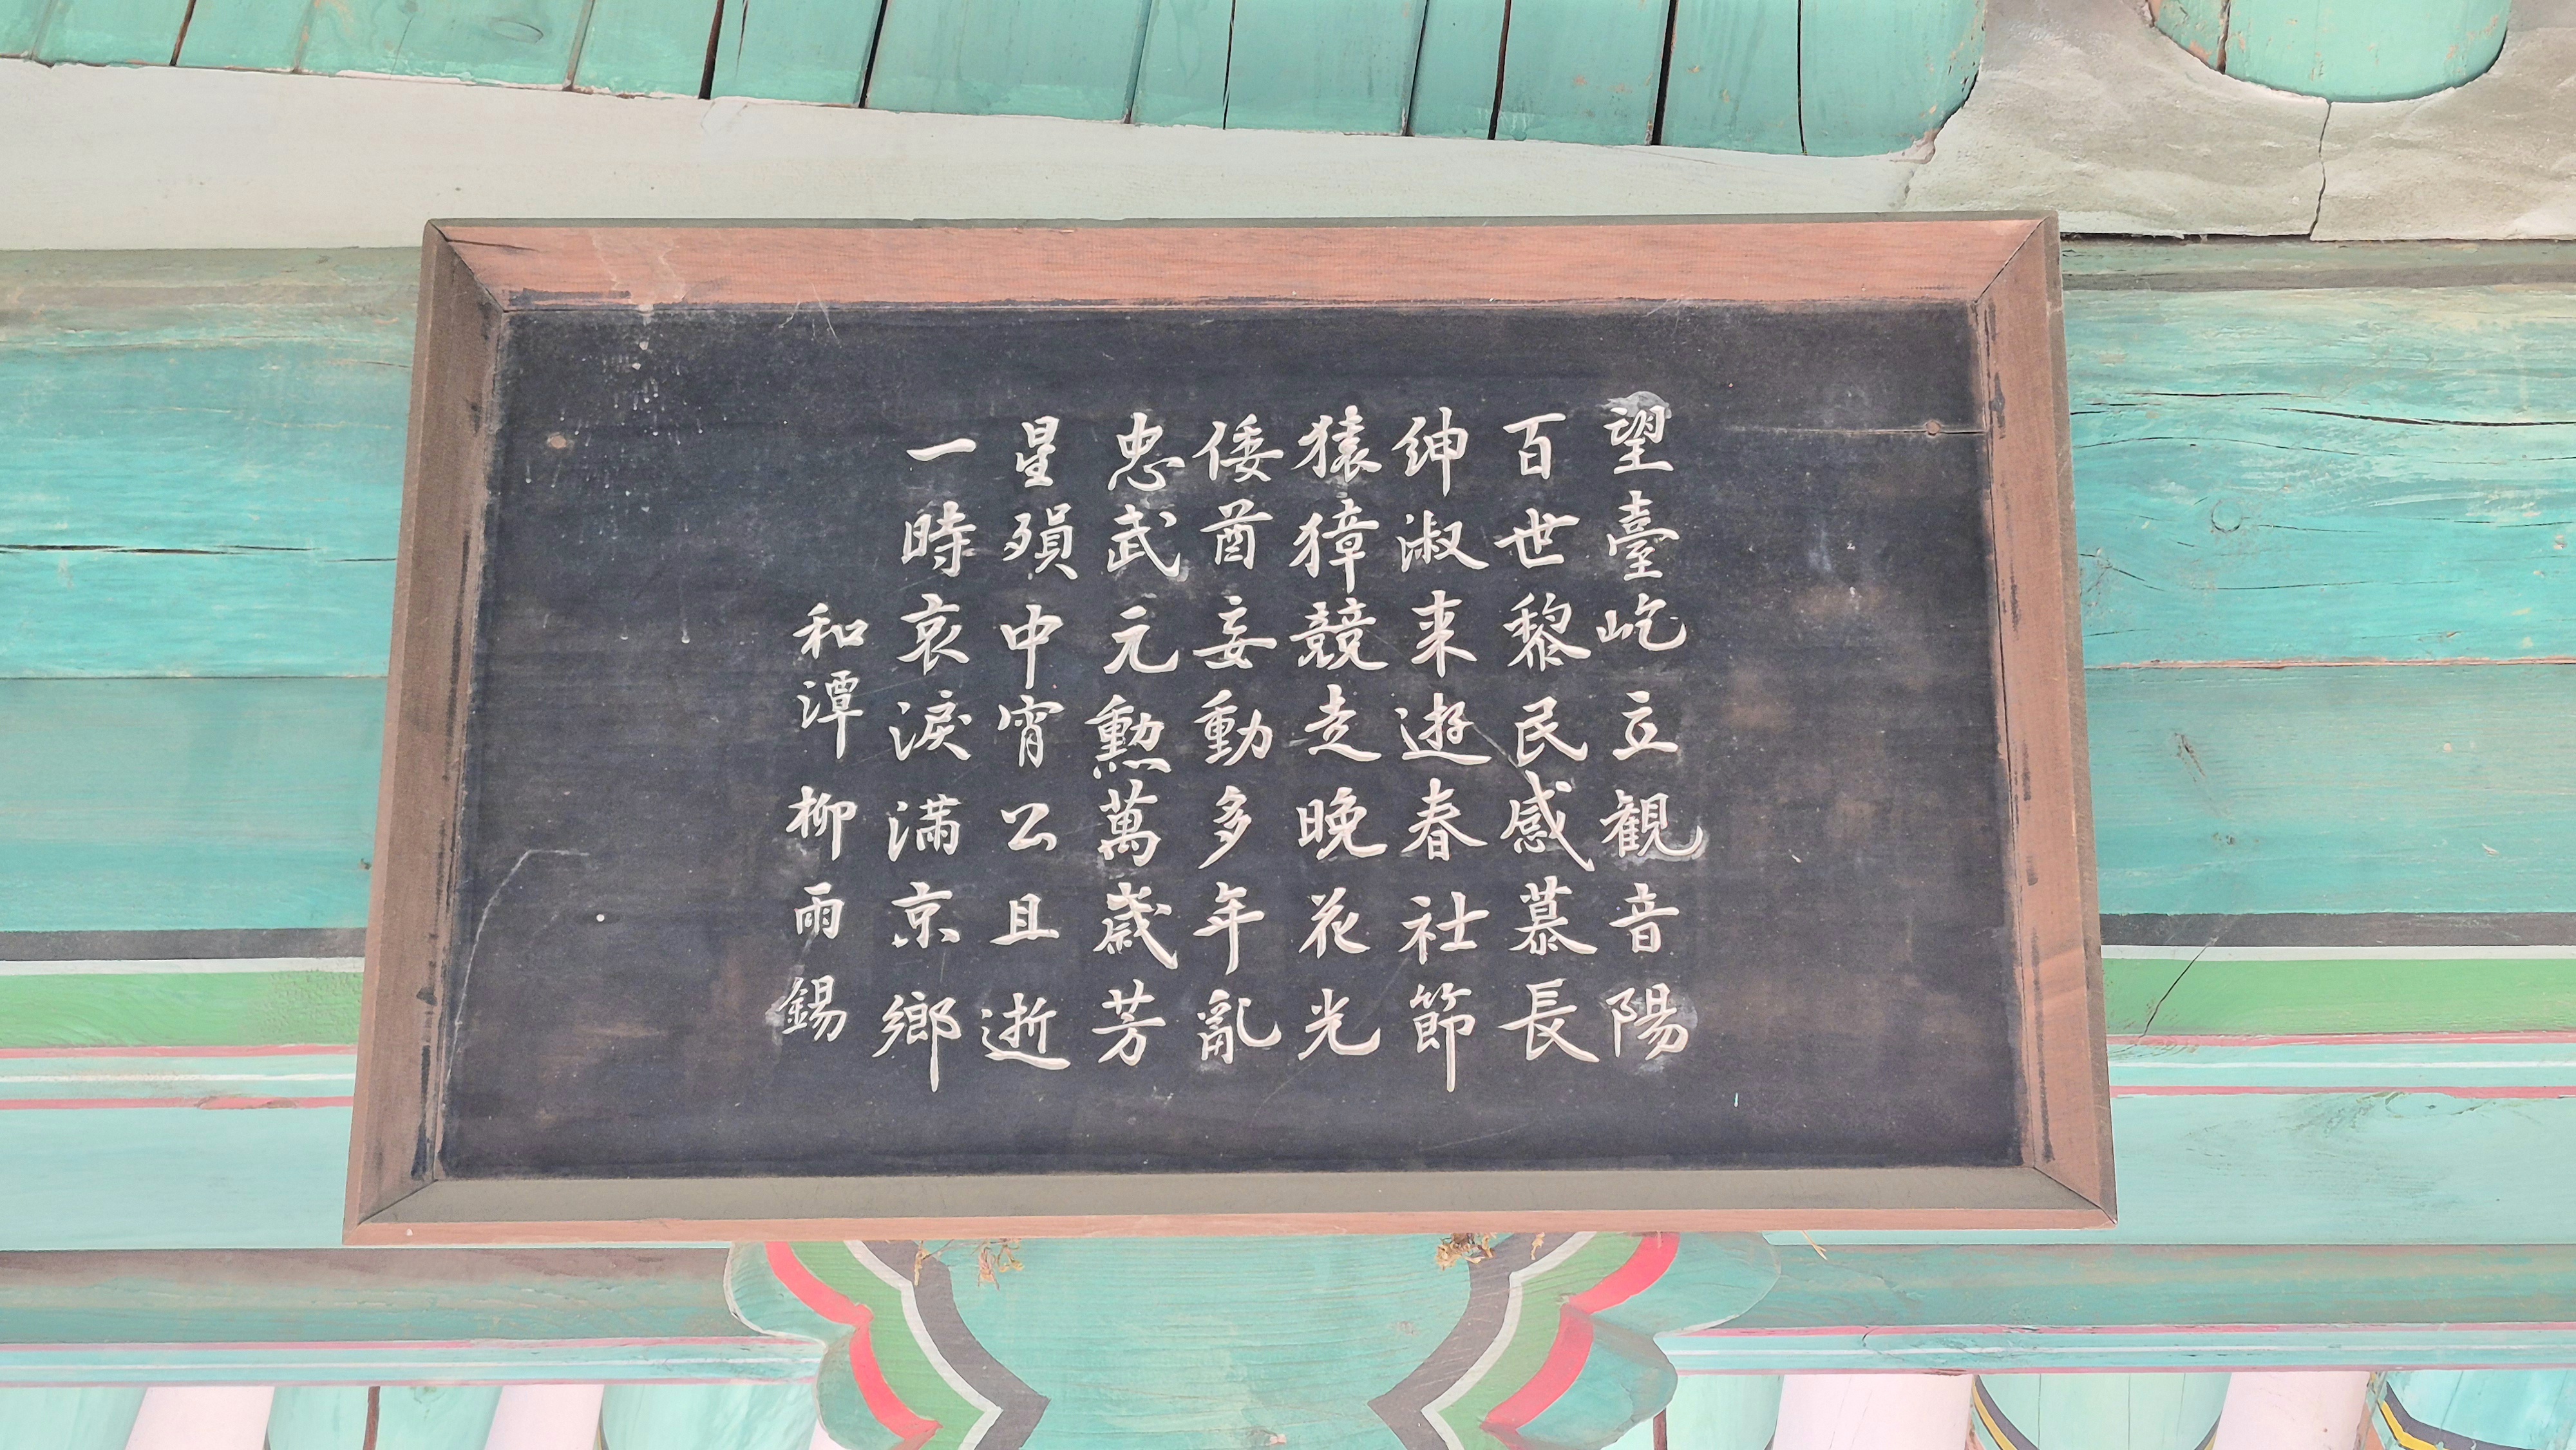 望臺屹立観音陽
百世黎民感慕長
紳淑来遊春社節
猿獐競走晚花光
倭酋妄動多年亂
忠武元勳萬歲芳
星殞中宵公且逝
一時哀淚満京鄉
和潭柳雨錫